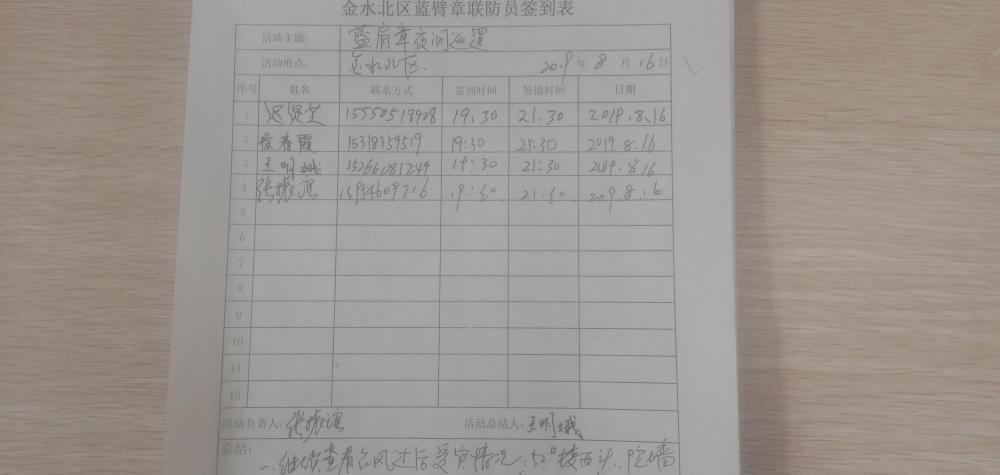 金水北区蓝臂章联防员签到表
活动主题: 蓝肩章夜间巡逻
活动地点: 金水北区. 2019年8月16日
序号 姓名 联系方式 签到时间 签退时间 日期
1 迟贤芝 15550518908 19.30 21.30 2019.8.16
2 徐春霞 15318359519 19:30 21:30 2019.8.16
3 王明娥 15266081249 19:30 21:30 2019.8.16
4 张振 13954609716 19:30. 21:30. 2019.8.16
5
6
7
8
9
10
11
12
活动负责人: 张振 活动总结人: 王明娥
总结:
一.继续查看台风过后受灾情况:52#楼西头, 院墙